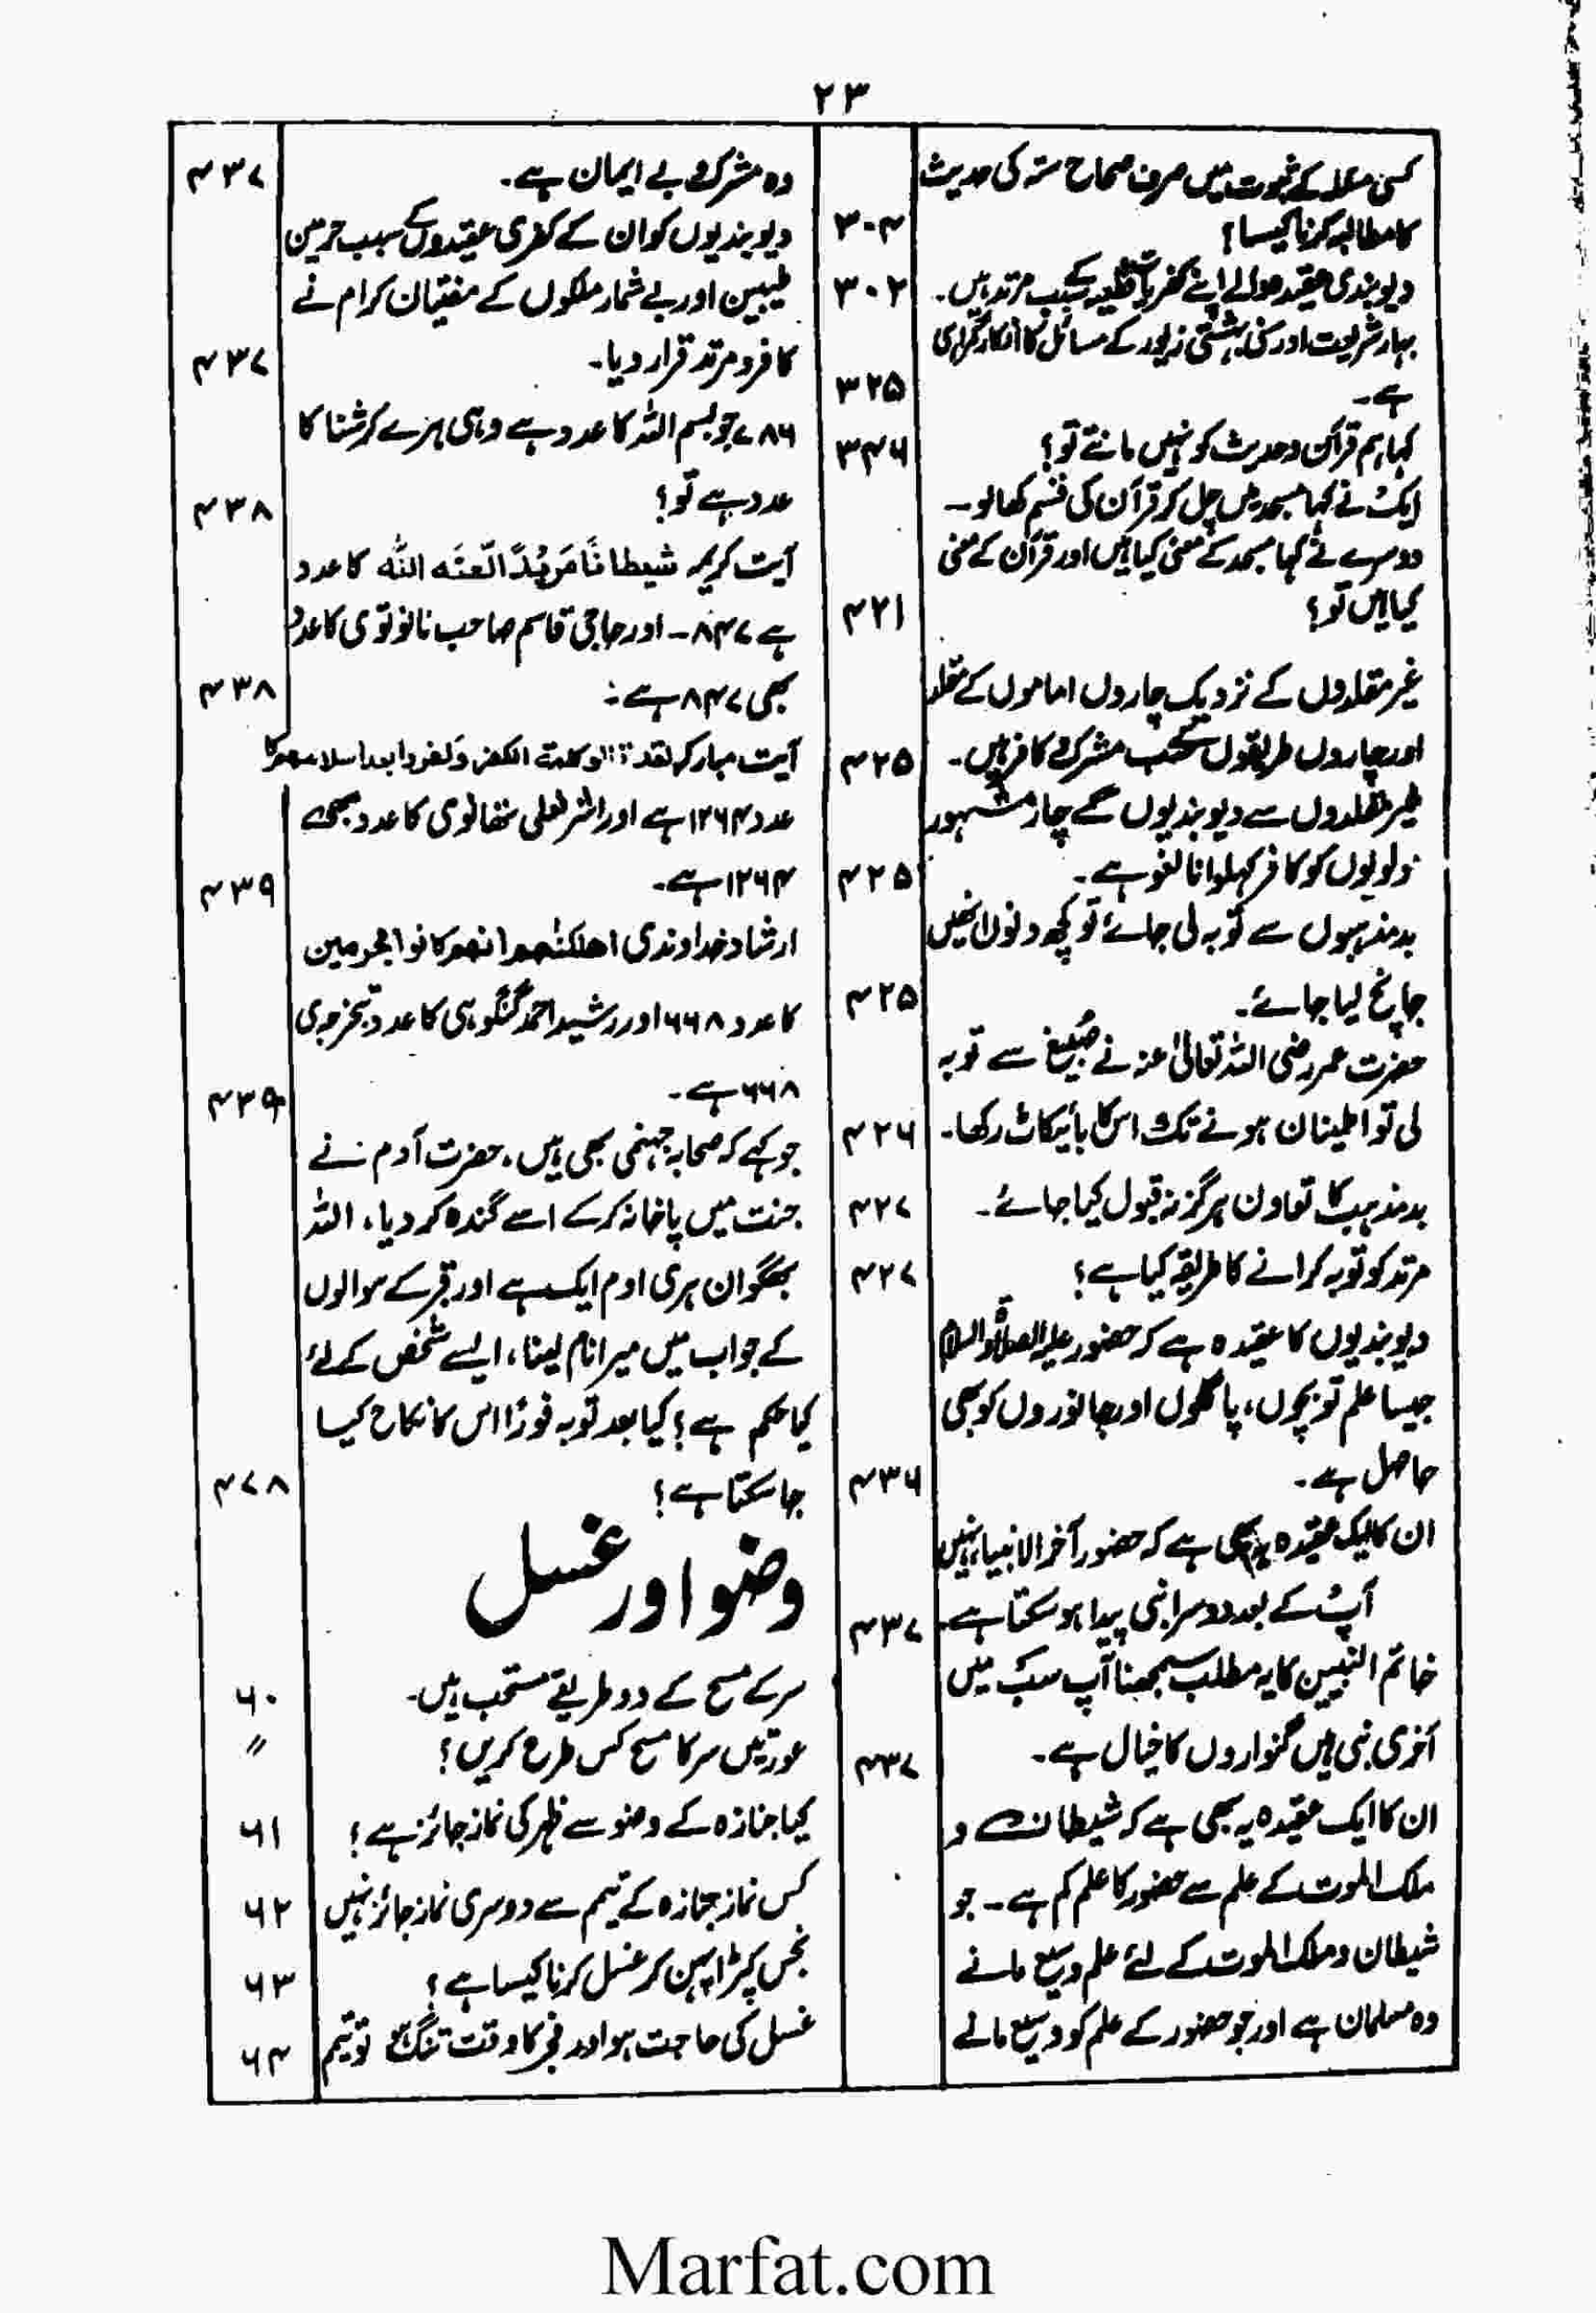 ۲۳
کسی مسئلہ کے ثبوت میں صرف صحاح ستہ کی حدیث
کا مطالبہ کرنا کیسا؟ ۳۰۴
دیوبندی عقیدہ والے اپنے کفریات قطعیہ کے سبب مرتد ہیں۔ ۳۰۲
بہار شریعت اور سنی بہشتی زیور کے مسائل کا انکار گمراہی
ہے۔ ۳۲۵
کہا ہم قرآن و حدیث کو نہیں مانتے تو؟ ۳۴۶
ایک نے کہا مسجد میں چل کر قرآن کی قسم کھا لو۔
دوسرے نے کہا مسجد کے معنی کیا ہیں اور قرآن کے معنی
کیا ہیں تو؟ ۴۲۱
غیر مقلدوں کے نزدیک چاروں اماموں کے مقلد
اور چاروں طریقوں کے سب مشرک و کافر ہیں۔ ۴۲۵
غیر مقلدوں سے دیوبندیوں کے چار مشہور
مولویوں کو کافر کہلوانا لغو ہے۔ ۴۲۵
بدمذہبوں سے توبہ لی جائے تو کچھ دنوں انہیں
جانچ لیا جائے۔ ۴۲۵
حضرت عمر رضی اللہ تعالیٰ عنہ نے صبیغ سے توبہ
لی تو اطینان ہونے تک اس کا بائیکاٹ رکھا۔ ۴۲۶
بدمذہب کا تعاون ہرگز نہ قبول کیا جائے۔ ۴۲۷
مرتد کو توبہ کرانے کا طریقہ کیا ہے؟ ۴۲۷
دیوبندیوں کا عقیدہ ہے کہ حضور علیہ الصلاۃ والسلام
جیسا علم تو بچوں، پاگلوں اور جانوروں کو بھی
حاصل ہے۔ ۴۳۶
ان کا ایک عقیدہ یہ بھی ہے کہ حضور آخر الانبیاء نہیں
آپ کے بعد دوسرا نبی پیدا ہو سکتا ہے۔ ۴۳۷
خاتم النبیین کا یہ مطلب سمجھنا آپ سب میں
آخری نبی ہیں گنواروں کا خیال ہے۔ ۴۳۷
ان کا ایک عقیدہ یہ بھی ہے کہ شیطان و
ملک الموت کے علم سے حضور کا علم کم ہے۔ جو
شیطان و ملک الموت کے لئے علم وسیع مانے
وہ مسلمان ہے اور جو حضور کے علم کو وسیع مانے
وہ مشرک و بے ایمان ہے۔ ۴۳۷
دیوبندیوں کو ان کے کفری عقیدوں کے سبب حرمین
طیبین اور بے شمار ملکوں کے مفتیان کرام نے
کافر و مرتد قرار دیا۔ ۴۳۷
۷۸۶ جو بسم اللہ کا عدد ہے وہی ہرے کرشنا کا
عدد ہے تو؟ ۴۳۸
آیت کریمہ شیطانًا مَرِیْدًا لَّعَنَہ اللہ کا عدد
ہے ۸۴۷۔ اور حاجی قاسم صاحب نانوتوی کا عدد
بھی ۸۴۷ ہے: ۴۳۸
آیت مبارکہ لقد قالوا کلمۃ الکفر وکفروا بعد اسلامھم کا
عدد ۱۲۶۴ ہے اور اشرفعلی تھانوی کا عدد بھی
۱۲۶۴ ہے۔ ۴۳۹
ارشاد خداوندی اھلکنٰھم انھم کانوا مجرمین
کا عدد ۶۶۸ اور رشید احمد گنگوہی کا عدد تخرجوی
۶۶۸ ہے۔ ۴۳۹
جو کہے کہ صحابہ جہنمی بھی ہیں، حضرت آدم نے
جنت میں پاخانہ کرکے اسے گندہ کر دیا، اللہ
بھگوان ہری اوم ایک ہے اور قبر کے سوالوں
کے جواب میں میرا نام لینا، ایسے شخص کے لئے
کیا حکم ہے؟ کیا بعد توبہ فوراً اس کا نکاح کیا
جا سکتا ہے؟ ۴۷۸
وضو اور غسل
سر کے مسح کے دو طریقے مستحب ہیں۔ ۶۰
عورتیں سر کا مسح کس طرح کریں؟ ״
کیا جنازہ کے وضو سے ظہر کی نماز جائز ہے؟ ۶۱
کس نماز جنازہ کے تیمم سے دوسری نماز جائز نہیں ۶۲
نجس کپڑا پہن کر غسل کرنا کیسا ہے؟ ۶۳
غسل کی حاجت ہو اور فجر کا وقت تنگ ہو تو تیمم ۶۴
Marfat.com